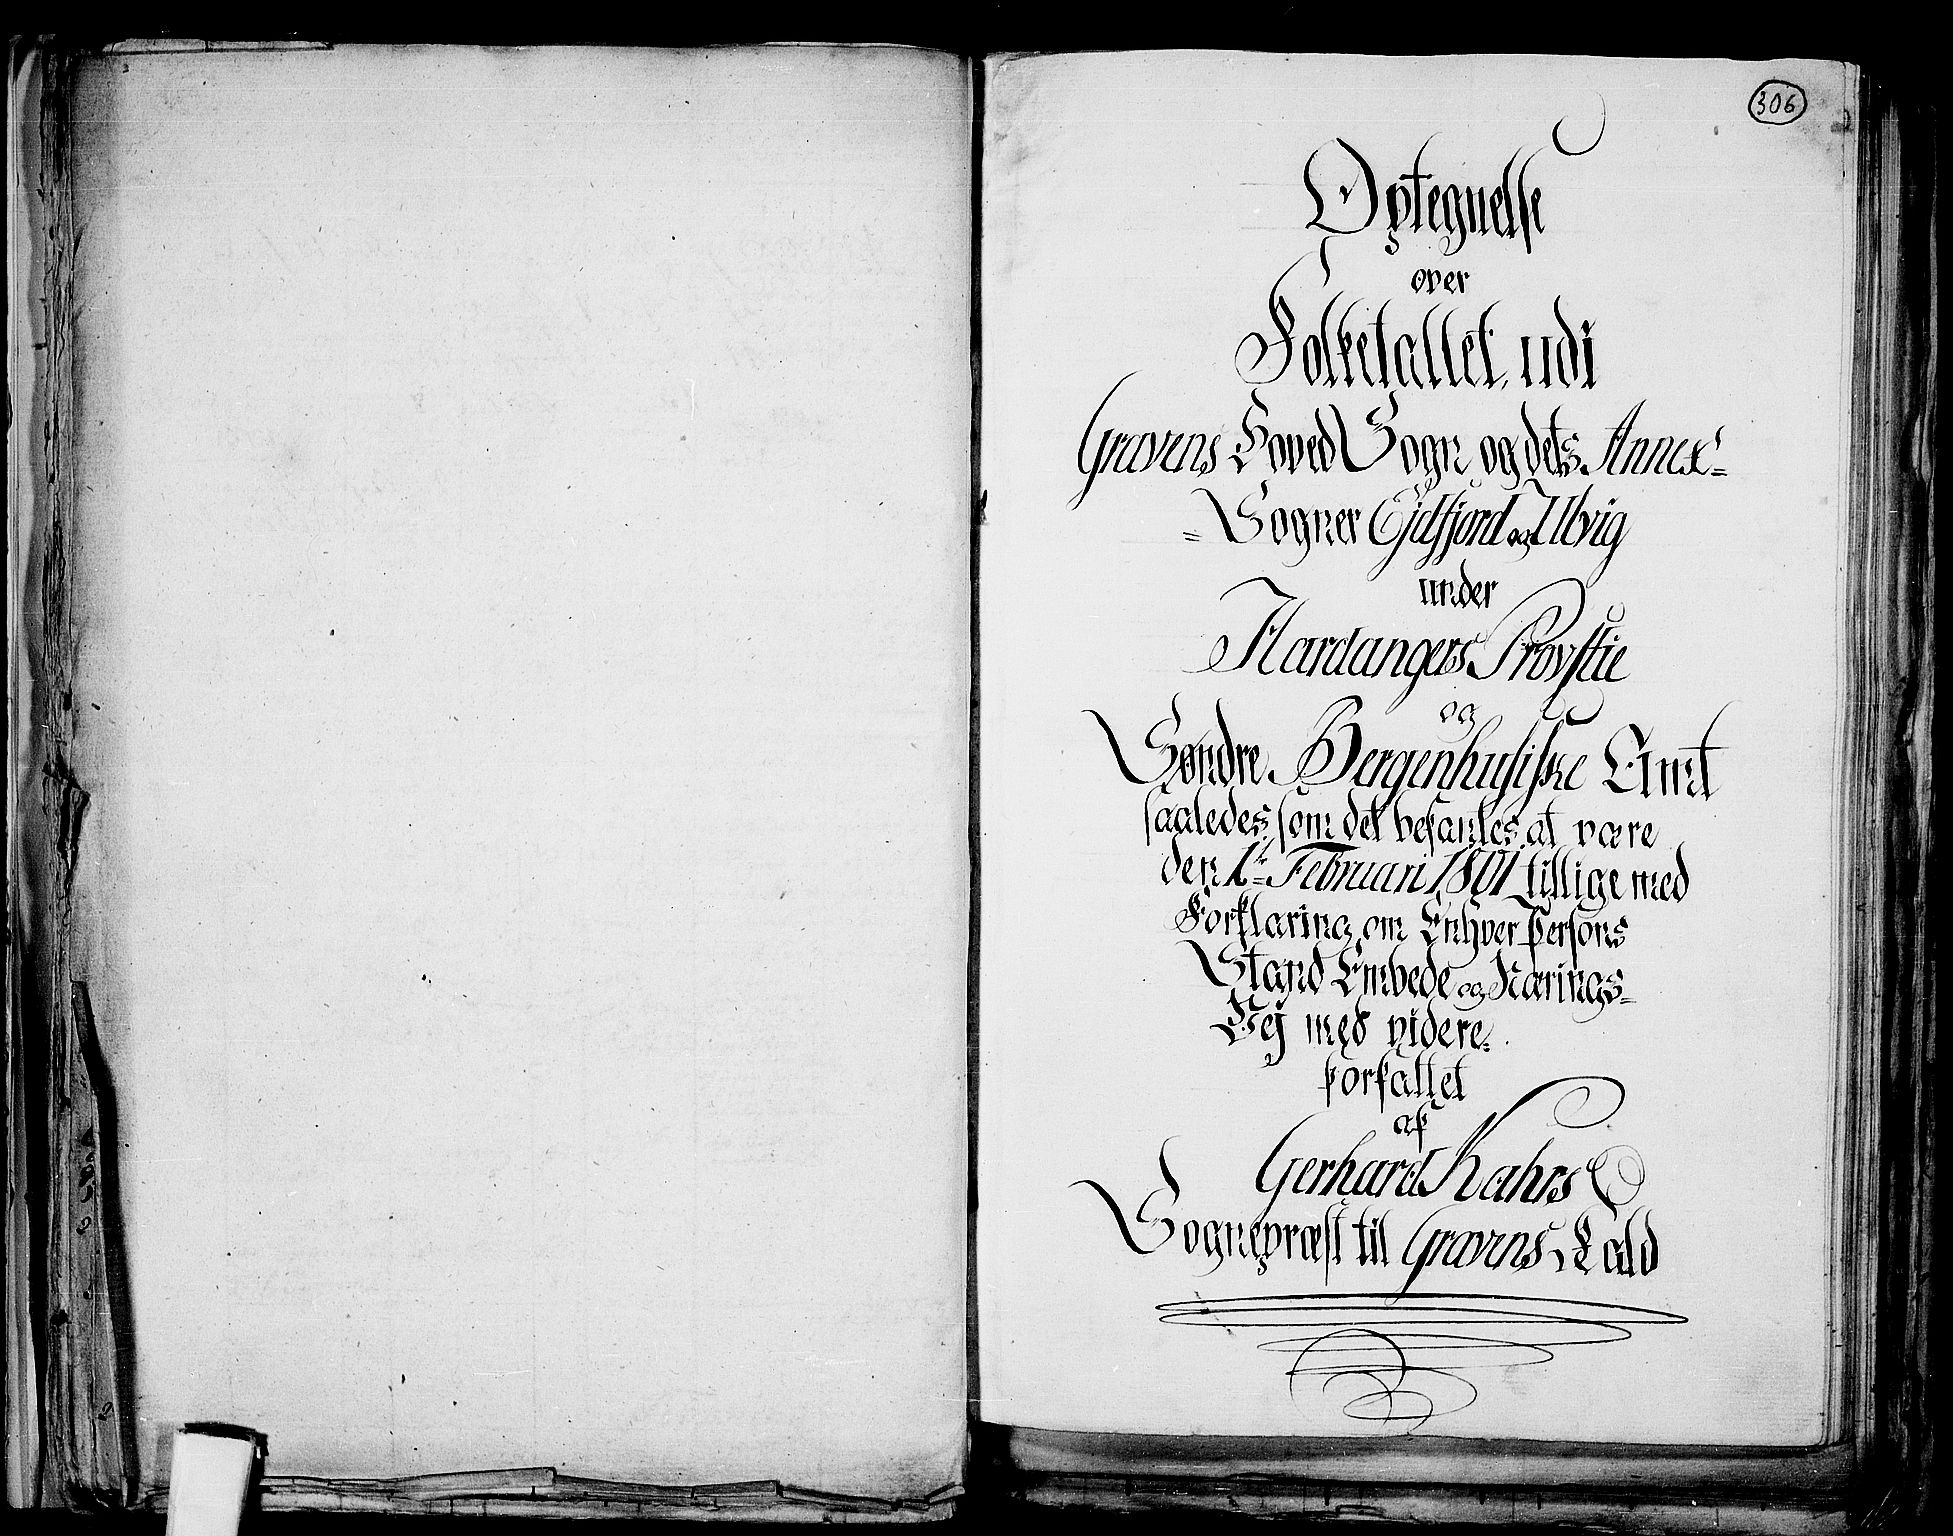 306
Optegnelse
over
Folketallet, udi
Gravens Hoved Sogn og dets Annex=
=Sogner Ejdfjord og Ulvig
under
Hardangers Provstie
og
Søndre Bergenhusiske Amt
saaledes som det befantes at være
den 1te Februari 1801 tillige med
Forklaring om Enhver Persons
Stand Embede og Nærings=
Vej med videre.
forfattet
af
Gerhard Kahrs
Sognepræst til Gravens Kald